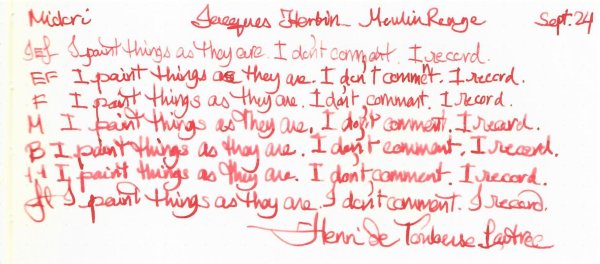 Midori Jacques Herbin - Moulin Rouge Sept. 24
I paint things as they are. I don't comment. I record.
EF I paint things as they are. I don't comment. I record.
F I paint things as they are. I don't comment. I record.
M I paint things as they are. I don't comment. I record.
B I paint things as they are. I don't comment. I record.
I paint things as they are. I don't comment. I record.
I paint things as they are. I don't comment. I record.
Henri de Toulouse Lautrec